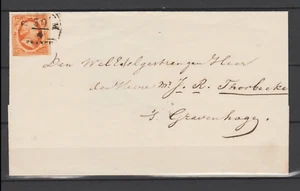 Den WelEdelgestrengen Heer
den Heere Mr J. R. Thorbecke
's Gravenhage.